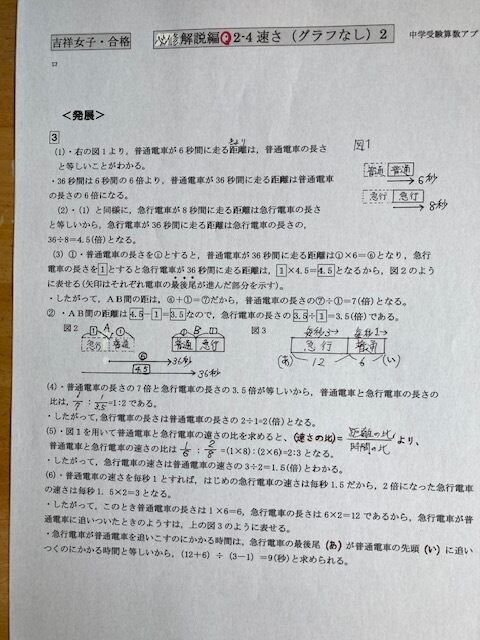 吉祥女子・合格
必修 解説編 2-4 速さ（グラフなし）2
中学受験算数アプ
ロ
＜発展＞
3
(1)・右の図1より，普通電車が6秒間に走る距離は，普通電車の長さ
きょり
と等しいことがわかる。
・36秒間は6秒間の6倍より，普通電車が36秒間に走る距離は普通電車
の長さの6倍になる。
図1
普通 普通
6秒
急行 急行
8秒
(2)・(1)と同様に，急行電車が8秒間に走る距離は急行電車の長さ
と等しいから，急行電車が36秒間に走る距離は急行電車の長さの，
36÷8＝4.5(倍)となる。
(3)①・普通電車の長さを①とすると，普通電車が36秒間に走る距離は①×6＝⑥となり，急行
電車の長さを1とすると急行電車が36秒間に走る距離は，1×4.5＝4.5となるから，図2のよう
に表せる(矢印はそれぞれ電車の最後尾が進んだ部分を示す)。
・したがって，AB間の距は，⑥＋①＝⑦だから，普通電車の長さの⑦÷①＝7(倍)となる。
②・AB間の距離は4.5－1＝3.5なので，急行電車の長さの3.5÷1＝3.5(倍)である。
図2
① A ①
急行 普通
① B 1
普通 急行
⑥ 36秒
4.5 36秒
図3
毎秒3→ 毎秒1→
急行 普通
(あ) 12 6 (い)
(4)・普通電車の長さの7倍と急行電車の長さの3.5倍が等しいから，普通電車と急行電車の長さの
比は，1/7：1/3.5＝1:2である。
・したがって，急行電車の長さは普通電車の長さの2÷1＝2(倍)となる。
(5)・図1を用いて普通電車と急行電車の速さの比を求めると，(速さの比)＝距離の比/時間の比 より，
普通電車と急行電車の速さの比は1/6：2/8＝(1×8)：(2×6)＝2:3となる。
・したがって，急行電車の速さは普通電車の速さの3÷2＝1.5(倍)とわかる。
(6)・普通電車の速さを毎秒1とすれば，はじめの急行電車の速さは毎秒1.5だから，2倍になった急行電車
の速さは毎秒1.5×2＝3となる。
・したがって，このとき普通電車の長さは1×6＝6，急行電車の長さは6×2＝12であるから，急行電車が普
通電車に追いついたときのようすは，上の図3のように表せる。
・急行電車が普通電車を追いこすのにかかる時間は，急行電車の最後尾(あ)が普通電車の先頭(い)に追い
つくのにかかる時間と等しいから，(12＋6)÷(3－1)＝9(秒)と求められる。